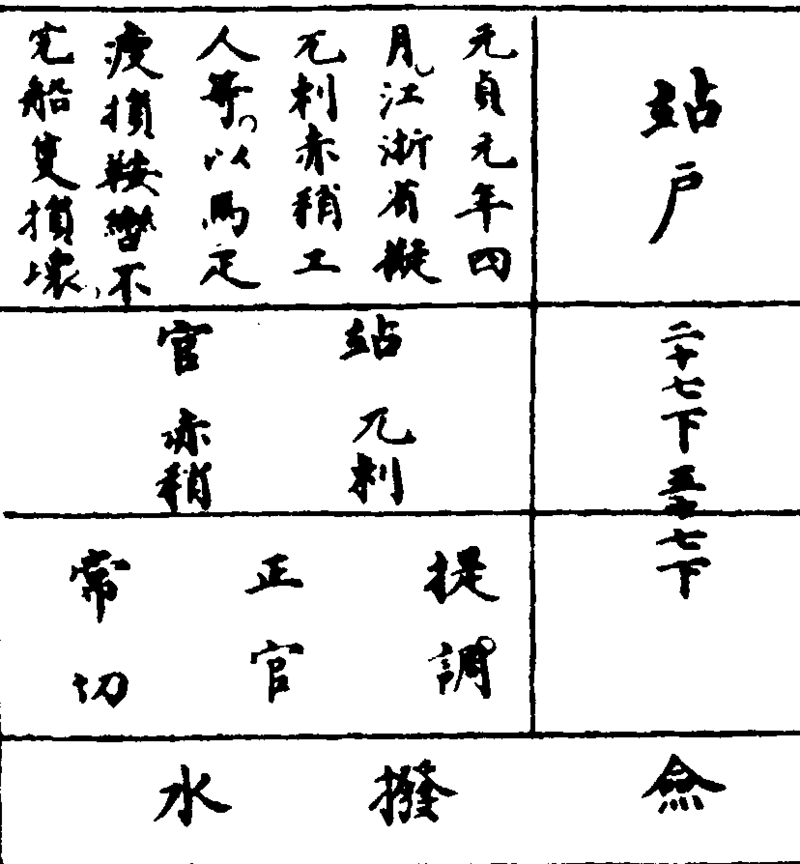 站户
元貞元年四
月江浙省擬
兀剌赤稍工
人等以馬疋
瘦損鞍轡不
完船隻損壞
二十七下五十七下
站兀剌
官赤稍
提調
正官
常切
僉
撥
水